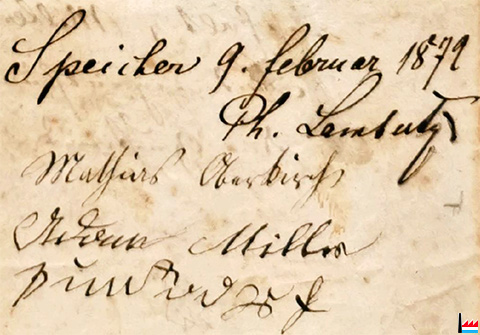 Speicher 9. februar 1872
Ph. Lembutz
Mathias Oberkirch
Adam Miller